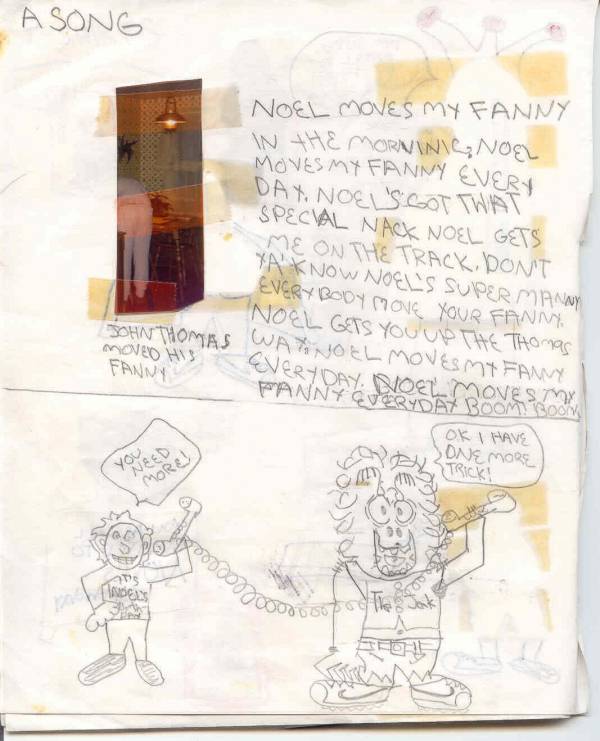 A SONG
NOEL MOVES MY FANNY
IN THE MORNINIG, NOEL
MOVES MY FANNY EVERY
DAY. NOEL'S GOT THAT
SPECIAL NACK NOEL GETS
ME ON THE TRACK. DON'T
YA KNOW NOEL'S SUPER MANNY
EVERYBODY MOVE YOUR FANNY.
NOEL GETS YOU UP THE THOMAS
WAY. NOEL MOVES MY FANNY
EVERYDAY. NOEL MOVES MY
FANNY EVERYDAY BOOM! BOOM
JOHN THOMAS
MOVED HIS
FANNY
YOU
NEED
MORE!
OK I HAVE
ONE MORE
TRICK!
IT'S
NOEL'S
DAY
The